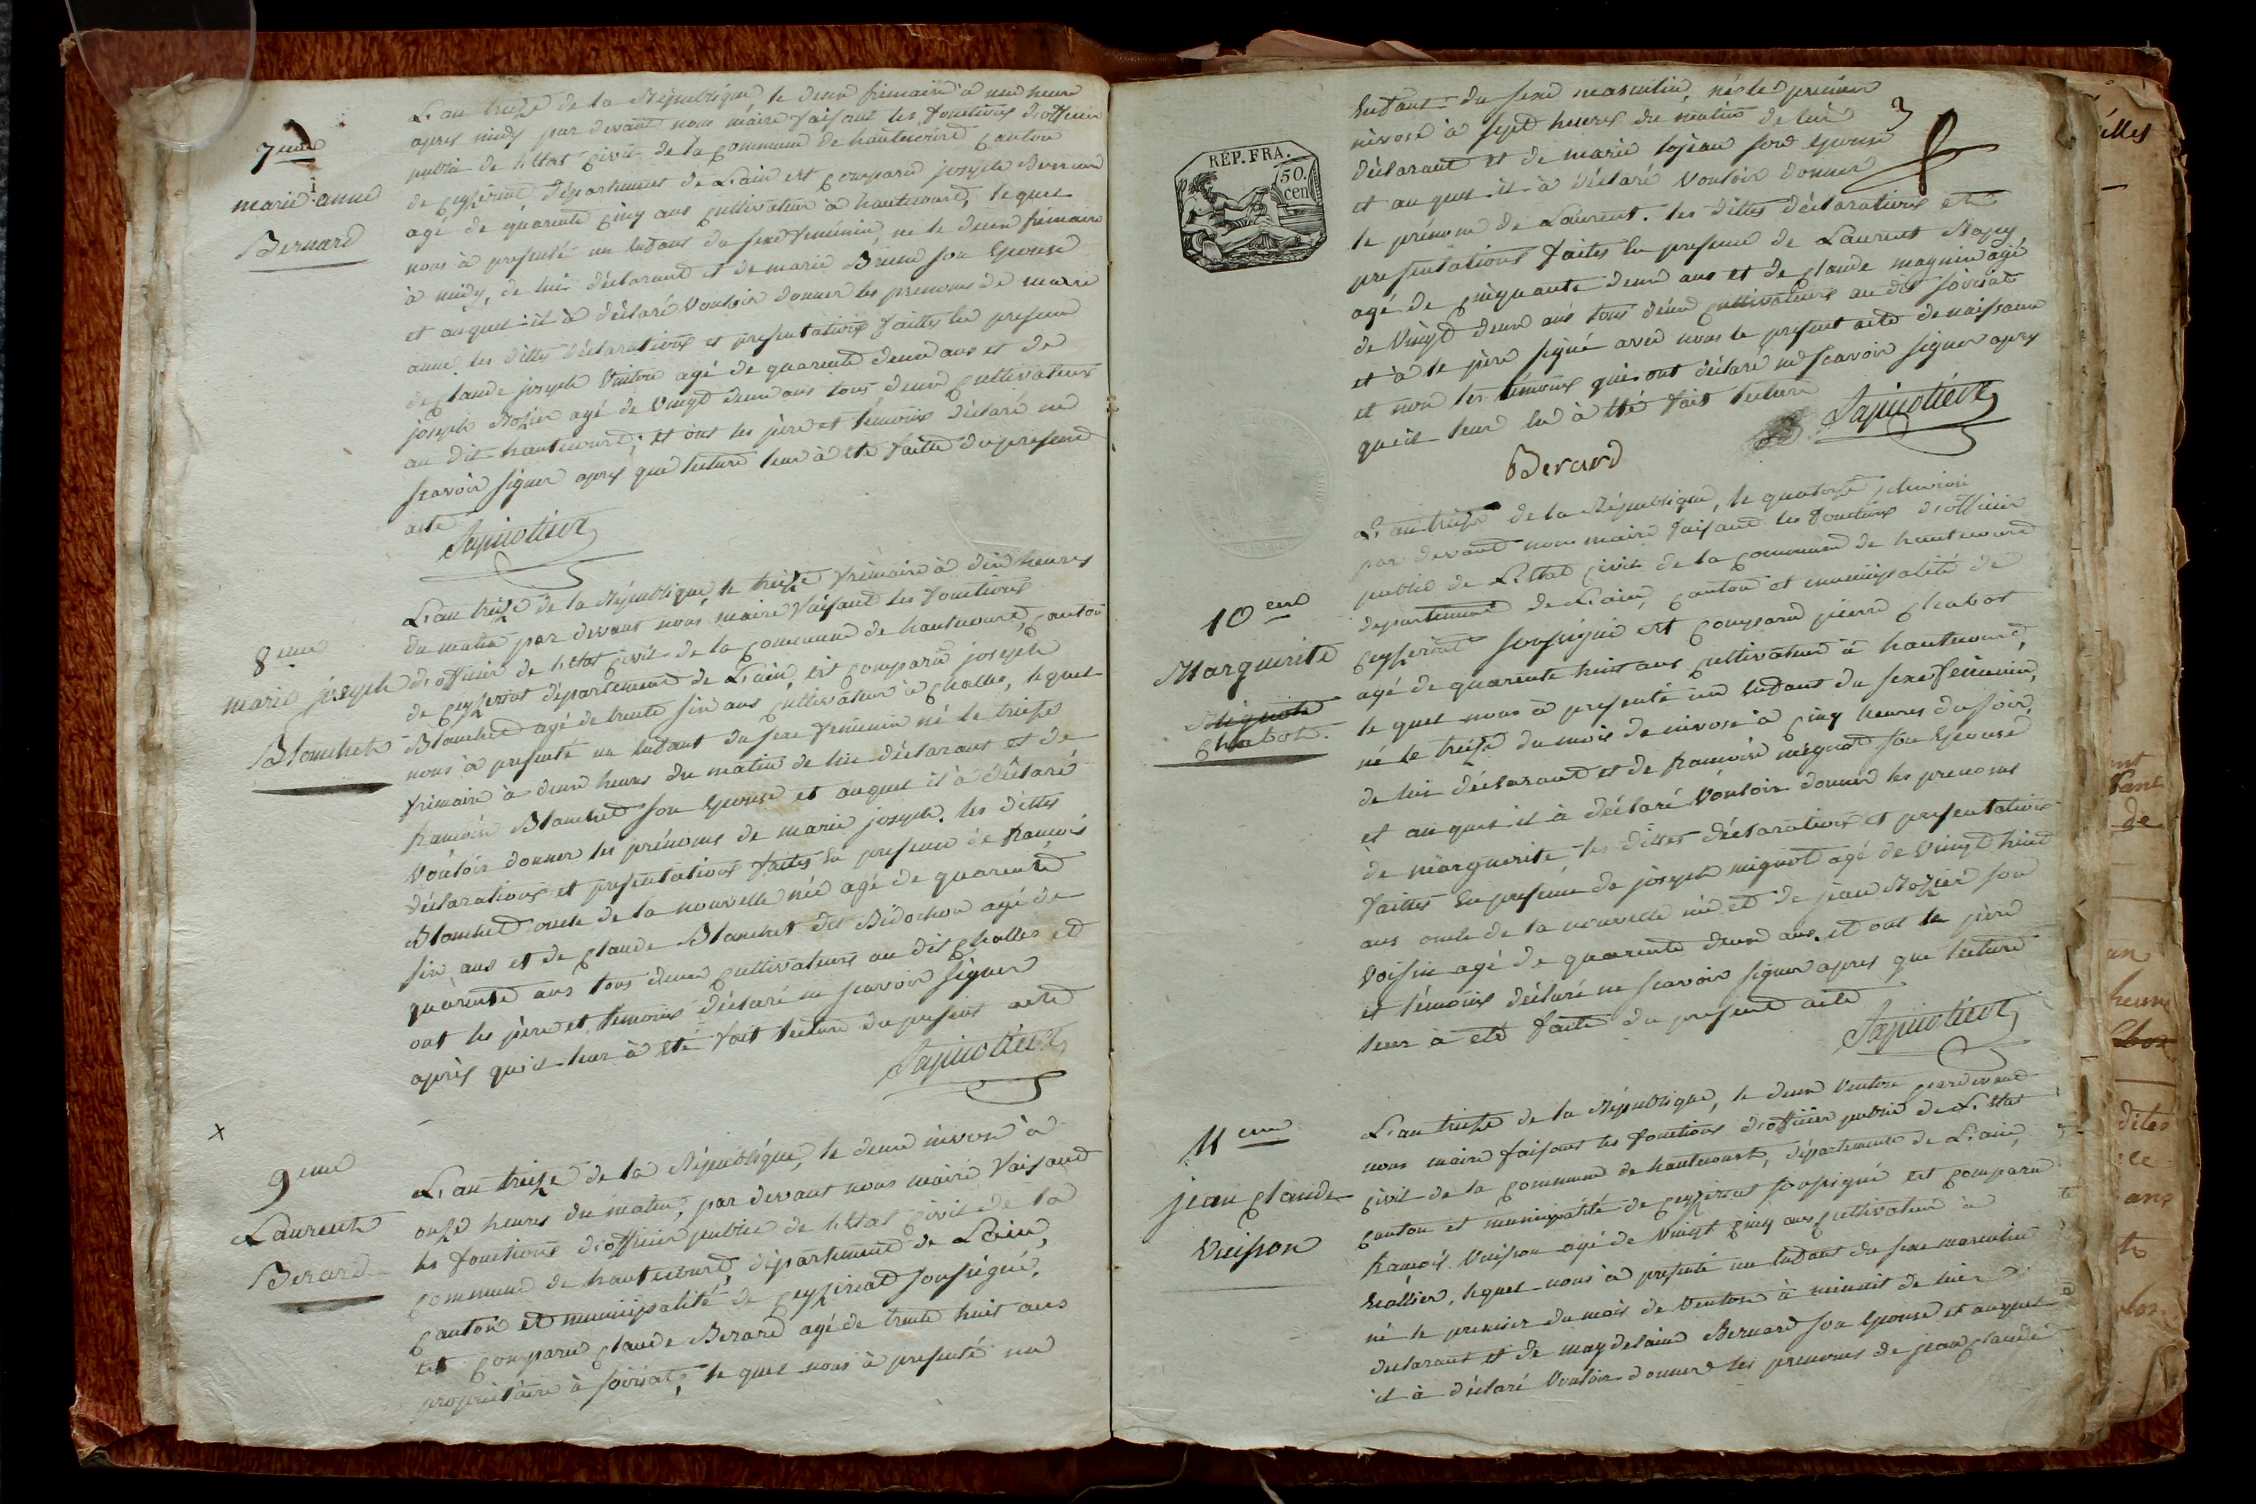 7eme
marie anne
Bernard
L'an treize de la République le deux frimaire à une heure
apres midy par devant nous maire faisant les fonctions d'officier
public de l'état civil de la commune de hautecourt canton
de ceyzeriat département de L'ain est comparu joseph Bernard
agé de quarente cinq ans cultivateur à hautecourt, lequel
nous à presenté un enfant du sexe féminin, né le deux frimaire
à midy, de lui déclarant et de marie son Epouse
et auquel il à déclaré vouloir donner les prenoms de marie
anne. les dittes déclarations et presentations faittes en presence
de claude joseph agé de quarente deux ans et de
joseph Rozier agé de vingt deux ans tous deux cultivateurs
au dit hautecourt; et ont les père et témoins déclaré ne
scavoir signer apres que lecture leur à eté faitte du present
acte
8eme
marie joseph
Blanchet
L'an treize de la République, le treize frimaire à dix heures
du matin par devant nous maire faisant les fonctions
d'officier de l'état civil de la commune de hautecourt, canton
de ceyzeriat département de L'ain, est comparu joseph
Blanchet agé de trente six ans cultivateur à challes, lequel
nous à presenté un enfant du sexe féminin né le treize
frimaire à deux heures du matin de lui déclarant et de
françoise Blanchet son Epouse et auquel il à déclaré
vouloir donner les prénoms de marie joseph. les dittes
déclarations et presentations faites en presence de françois
Blanchet oncle de la nouvelle née agé de quarente
six ans et de claude Blanchet dit Bidochon agé de
quarente ans tous deux cultivateurs au dit challes et
ont les père et temoins déclaré ne scavoir signer
après qu'il leur à eté fait lecture du présent acte
x
9eme
Laurent
Berard
L'an treize de la République, le deux nivose à
onze heures du matin, par devant nous maire faisant
les fonctions d'officier public de l'état civil de la
commune de hautecourt, département de L'ain,
canton et municipalité de ceyzeriat soussigné,
est comparu claude Berard agé de trente huit ans
propriétaire à soirsat, le quel nous à presenté un
REP. FRA.
50.
cen
3
Enfant du sexe masculin, né le premier
nivose à sept heures du matin de lui
déclarant et de marie lojeau son Epouse
et au quel il à déclaré vouloir donner
le prénom de Laurent. les dittes déclarations et
presentations faites en presence de Laurent
agé de cinquante deux ans et de claude magnin agé
de vingt deux ans tous deux cultivateurs au dit soirsat
et à le père signé avec nous le present acte de naissance
et non les témoins qui ont déclaré ne scavoir signer apres
qu'il leur en à été fait lecture
Berard
10eme
Marguerite
Mignot
Chabot
L'an treize de la République, le quatorze
par devant nous maire faisant les fonctions d'officier
public de L'état civil de la commune de hautecourt
département de L'ain, canton et municipalité de
ceyzeriat soussigné est comparu pierre chabot
agé de quarente huit ans cultivateur à hautecourt,
le quel nous à presenté un enfant du sexe féminin,
né le treize du mois de nivose à cinq heures du soir,
de lui déclarant et de françoise mignot son Epouse
et au quel il à déclaré vouloir donner les prenoms
de marguerite. les dittes déclarations et presentations
faittes en presence de joseph mignot agé de vingt huit
ans oncle de la nouvelle née et de jean Rozier son
voisin agé de quarente deux ans. et ont le père
et témoins déclaré ne scavoir signer apres que lecture
leur à eté faite du present acte
11eme
jean claude
Vuisson
L'an treize de la République, le deux ventose pardevant
nous maire faisant les fonctions d'officier public de L'état
civil de la commune de hautecourt, département de L'ain,
canton et municipalité de ceyzeriat soussigné est comparu
françois Vuisson agé de vingt cinq ans cultivateur à
lequel nous à presenté un enfant du sexe masculin
né le premier du mois de ventose à minuit de lui
declarant et de magdelaine Bernard son Epouse et auquel
il à déclaré vouloir donner les prenoms de jean claude